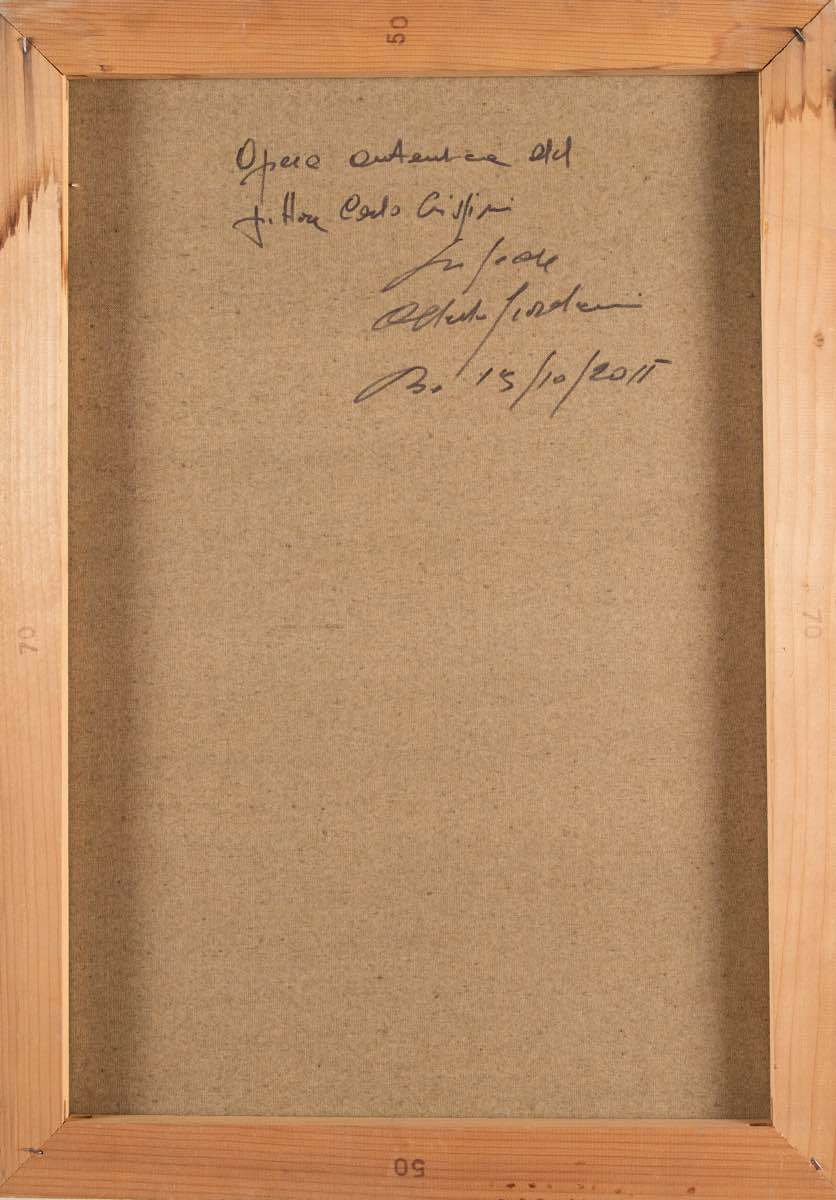 50
Opera autentica del
pittore Carlo Crispini
In fede
Alberto Giordani
Bo 15/10/2015
70
70
50